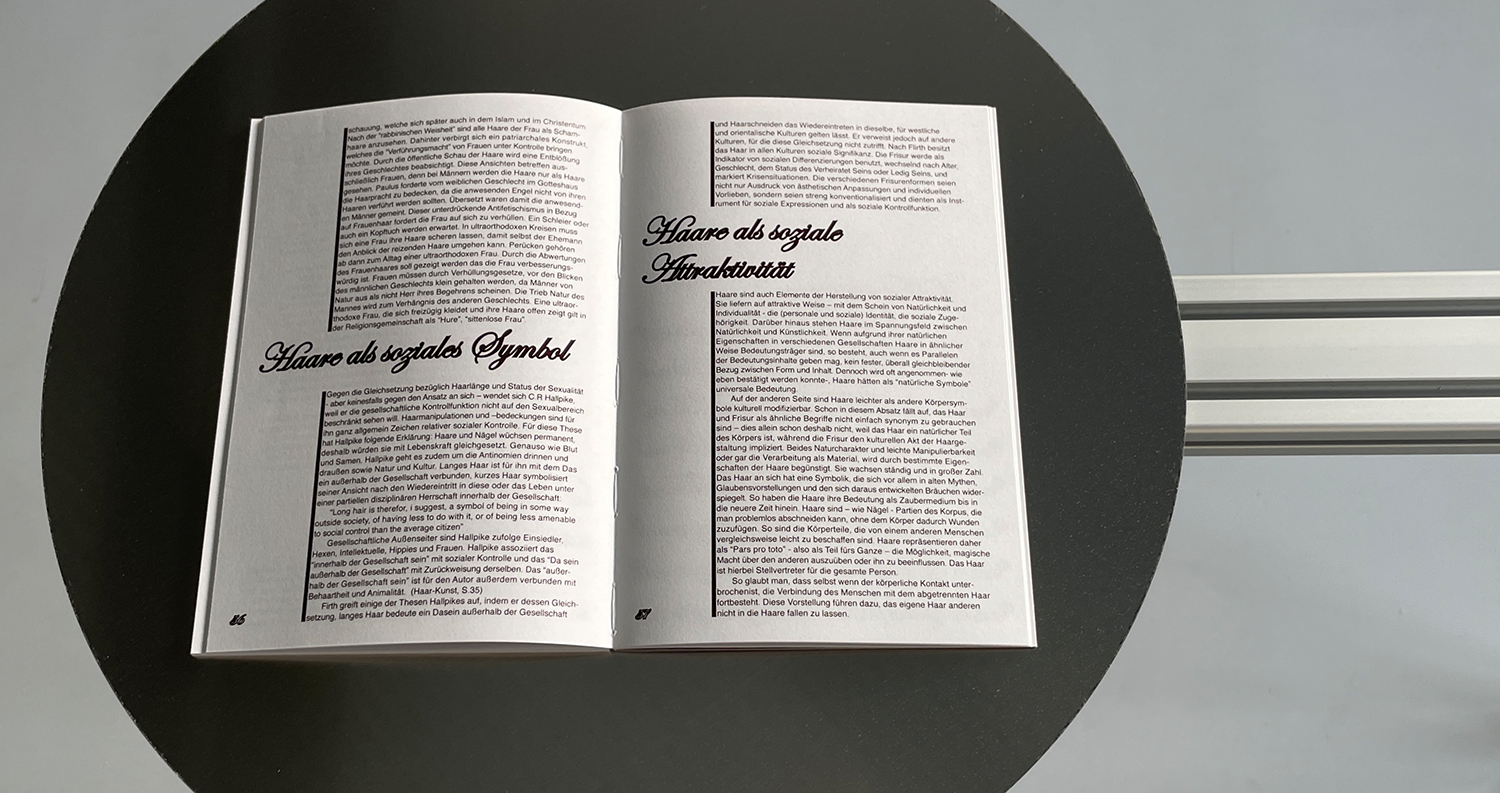 schauung, welche sich später auch in dem Islam und im Christentum
Nach der "rabbinischen Weisheit" sind alle Haare der Frau als Scham-
haare anzusehen. Dahinter verbirgt sich ein patriarchales Konstrukt,
welches die "Verführungsmacht" von Frauen unter Kontrolle bringen
möchte. Durch die öffentliche Schau der Haare wird eine Entblößung
ihres Geschlechtes beabsichtigt. Diese Ansichten betreffen aus-
schließlich Frauen, denn bei Männern werden die Haare nur als Haare
gesehen. Paulus forderte vom weiblichen Geschlecht im Gotteshaus
die Haarpracht zu bedecken, da die anwesenden Engel nicht von ihren
Haaren verführt werden sollten. Übersetzt waren damit die anwesend-
en Männer gemeint. Dieser unterdrückende Antifetischismus in Bezug
auf Frauenhaar fordert die Frau auf sich zu verhüllen. Ein Schleier oder
auch ein Kopftuch werden erwartet. In ultraorthodoxen Kreisen muss
sich eine Frau ihre Haare scheren lassen, damit selbst der Ehemann
den Anblick der reizenden Haare umgehen kann. Perücken gehören
ab dann zum Alltag einer ultraorthodoxen Frau. Durch die Abwertungen
des Frauenhaares soll gezeigt werden das die Frau verbesserungs-
würdig ist. Frauen müssen durch Verhüllungsgesetze, vor den Blicken
des männlichen Geschlechts klein gehalten werden, da Männer von
Natur aus als nicht Herr ihres Begehrens scheinen. Die Trieb Natur des
Mannes wird zum Verhängnis des anderen Geschlechts. Eine ultraor-
thodoxe Frau, die sich freizügig kleidet und ihre Haare offen zeigt gilt in
der Religionsgemeinschaft als "Hure", "sittenlose Frau".
Haare als soziales Symbol
Gegen die Gleichsetzung bezüglich Haarlänge und Status der Sexualität
- aber keinesfalls gegen den Ansatz an sich – wendet sich C.R Hallpike,
weil er die gesellschaftliche Kontrollfunktion nicht auf den Sexualbereich
beschränkt sehen will. Haarmanipulationen und –bedeckungen sind für
ihn ganz allgemein Zeichen relativer sozialer Kontrolle. Für diese These
hat Hallpike folgende Erklärung: Haare und Nägel wüchsen permanent,
deshalb würden sie mit Lebenskraft gleichgesetzt. Genauso wie Blut
und Samen. Hallpike geht es zudem um die Antinomien drinnen und
draußen sowie Natur und Kultur. Langes Haar ist für ihn mit dem Das
ein außerhalb der Gesellschaft verbunden, kurzes Haar symbolisiert
seiner Ansicht nach den Wiedereintritt in diese oder das Leben unter
einer partiellen disziplinären Herrschaft innerhalb der Gesellschaft:
"Long hair is therefor, i suggest, a symbol of being in some way
outside society, of having less to do with it, or of being less amenable
to social control than the average citizen"
Gesellschaftliche Außenseiter sind Hallpike zufolge Einsiedler,
Hexen, Intellektuelle, Hippies und Frauen. Hallpike assoziiert das
"innerhalb der Gesellschaft sein" mit sozialer Kontrolle und das "Da sein
außerhalb der Gesellschaft" mit Zurückweisung derselben. Das "außer-
halb der Gesellschaft sein" ist für den Autor außerdem verbunden mit
Behaartheit und Animalität. (Haar-Kunst, S.35)
Firth greift einige der Thesen Hallpikes auf, indem er dessen Gleich-
setzung, langes Haar bedeute ein Dasein außerhalb der Gesellschaft
86
und Haarschneiden das Wiedereintreten in dieselbe, für westliche
und orientalische Kulturen gelten lässt. Er verweist jedoch auf andere
Kulturen, für die diese Gleichsetzung nicht zutrifft. Nach Flirth besitzt
das Haar in allen Kulturen soziale Signifikanz. Die Frisur werde als
Indikator von sozialen Differenzierungen benutzt, wechselnd nach Alter,
Geschlecht, dem Status des Verheiratet Seins oder Ledig Seins, und
markiert Krisensituationen. Die verschiedenen Frisurenformen seien
nicht nur Ausdruck von ästhetischen Anpassungen und individuellen
Vorlieben, sondern seien streng konventionalisiert und dienten als Inst-
rument für soziale Expressionen und als soziale Kontrollfunktion.
Haare als soziale
Attraktivität
Haare sind auch Elemente der Herstellung von sozialer Attraktivität.
Sie liefern auf attraktive Weise – mit dem Schein von Natürlichkeit und
Individualität - die (personale und soziale) Identität, die soziale Zuge-
hörigkeit. Darüber hinaus stehen Haare im Spannungsfeld zwischen
Natürlichkeit und Künstlichkeit. Wenn aufgrund ihrer natürlichen
Eigenschaften in verschiedenen Gesellschaften Haare in ähnlicher
Weise Bedeutungsträger sind, so besteht, auch wenn es Parallelen
der Bedeutungsinhalte geben mag, kein fester, überall gleichbleibender
Bezug zwischen Form und Inhalt. Dennoch wird oft angenommen- wie
eben bestätigt werden konnte-, Haare hätten als "natürliche Symbole"
universale Bedeutung.
Auf der anderen Seite sind Haare leichter als andere Körpersym-
bole kulturell modifizierbar. Schon in diesem Absatz fällt auf, das Haar
und Frisur als ähnliche Begriffe nicht einfach synonym zu gebrauchen
sind – dies allein schon deshalb nicht, weil das Haar ein natürlicher Teil
des Körpers ist, während die Frisur den kulturellen Akt der Haarge-
staltung impliziert. Beides Naturcharakter und leichte Manipulierbarkeit
oder gar die Verarbeitung als Material, wird durch bestimmte Eigen-
schaften der Haare begünstigt. Sie wachsen ständig und in großer Zahl.
Das Haar an sich hat eine Symbolik, die sich vor allem in alten Mythen,
Glaubensvorstellungen und den sich daraus entwickelten Bräuchen wider-
spiegelt. So haben die Haare ihre Bedeutung als Zaubermedium bis in
die neuere Zeit hinein. Haare sind – wie Nägel - Partien des Korpus, die
man problemlos abschneiden kann, ohne dem Körper dadurch Wunden
zuzufügen. So sind die Körperteile, die von einem anderen Menschen
vergleichsweise leicht zu beschaffen sind. Haare repräsentieren daher
als "Pars pro toto" - also als Teil fürs Ganze – die Möglichkeit, magische
Macht über den anderen auszuüben oder ihn zu beeinflussen. Das Haar
ist hierbei Stellvertreter für die gesamte Person.
So glaubt man, dass selbst wenn der körperliche Kontakt unter-
brochenist, die Verbindung des Menschen mit dem abgetrennten Haar
fortbesteht. Diese Vorstellung führen dazu, das eigene Haar anderen
nicht in die Haare fallen zu lassen.
87